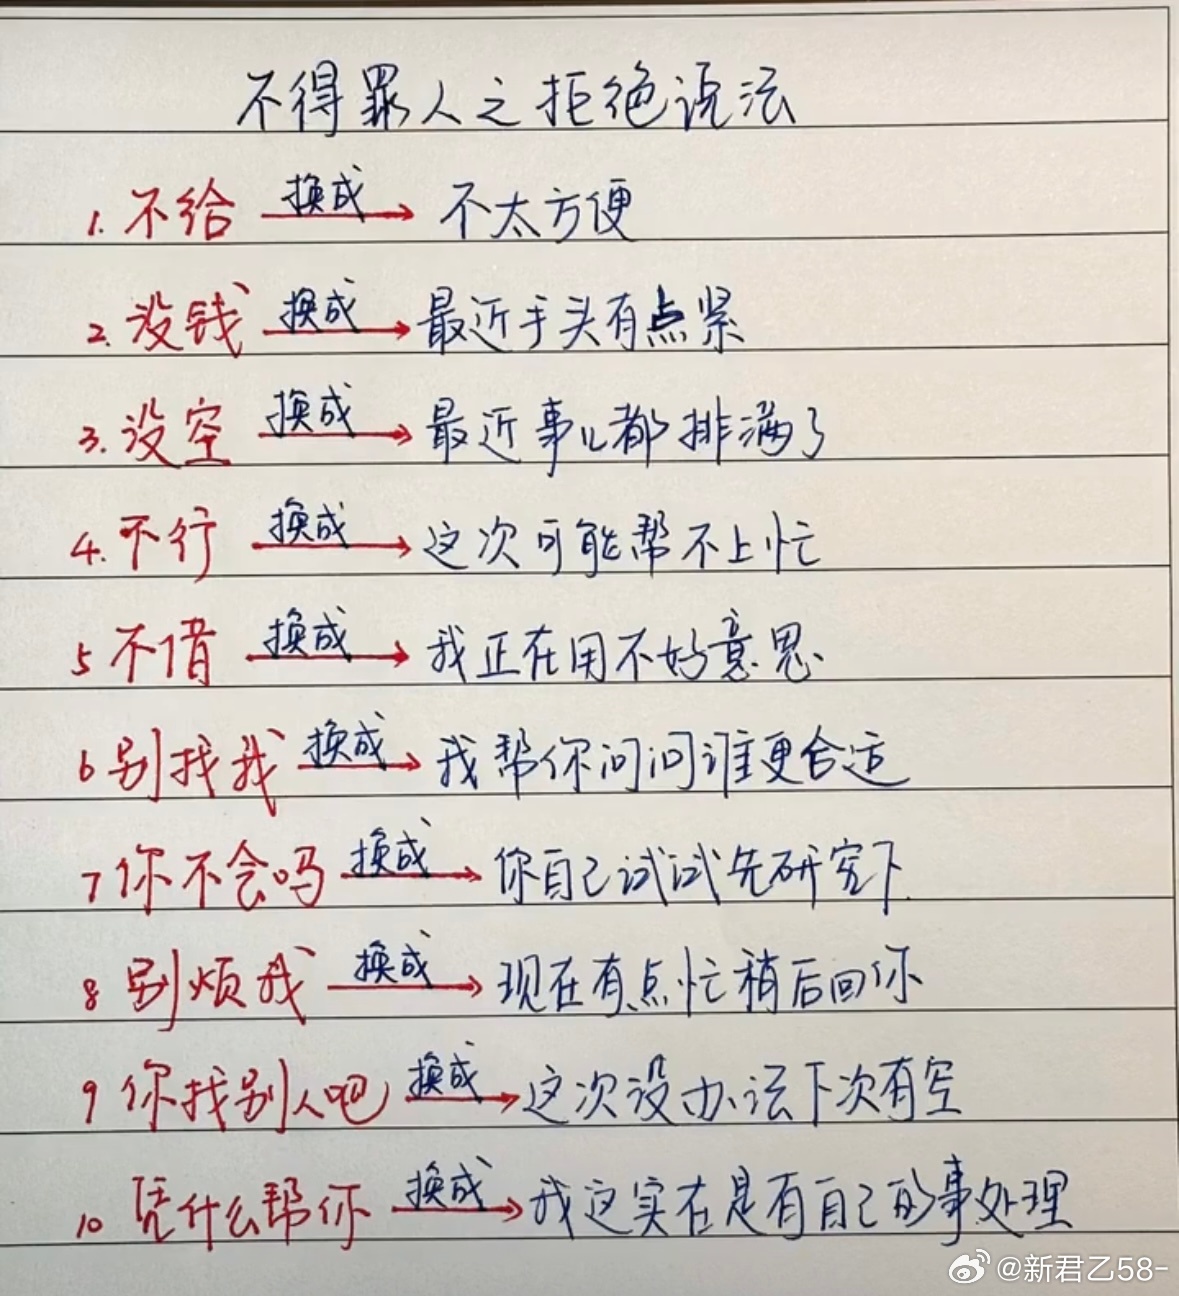 不得罪人之拒绝说法
1. 不给 换成 不太方便
2. 没钱 换成 最近手头有点紧
3. 没空 换成 最近事儿都排满了
4. 不行 换成 这次可能帮不上忙
5 不借 换成 我正在用不好意思
6 别找我 换成 我帮你问问谁更合适
7 你不会吗 换成 你自己试试先研究下
8 别烦我 换成 现在有点忙稍后回你
9 你找别人吧 换成 这次没办法下次有空
10 凭什么帮你 换成 我这实在是有自己的事处理
@新君乙58-